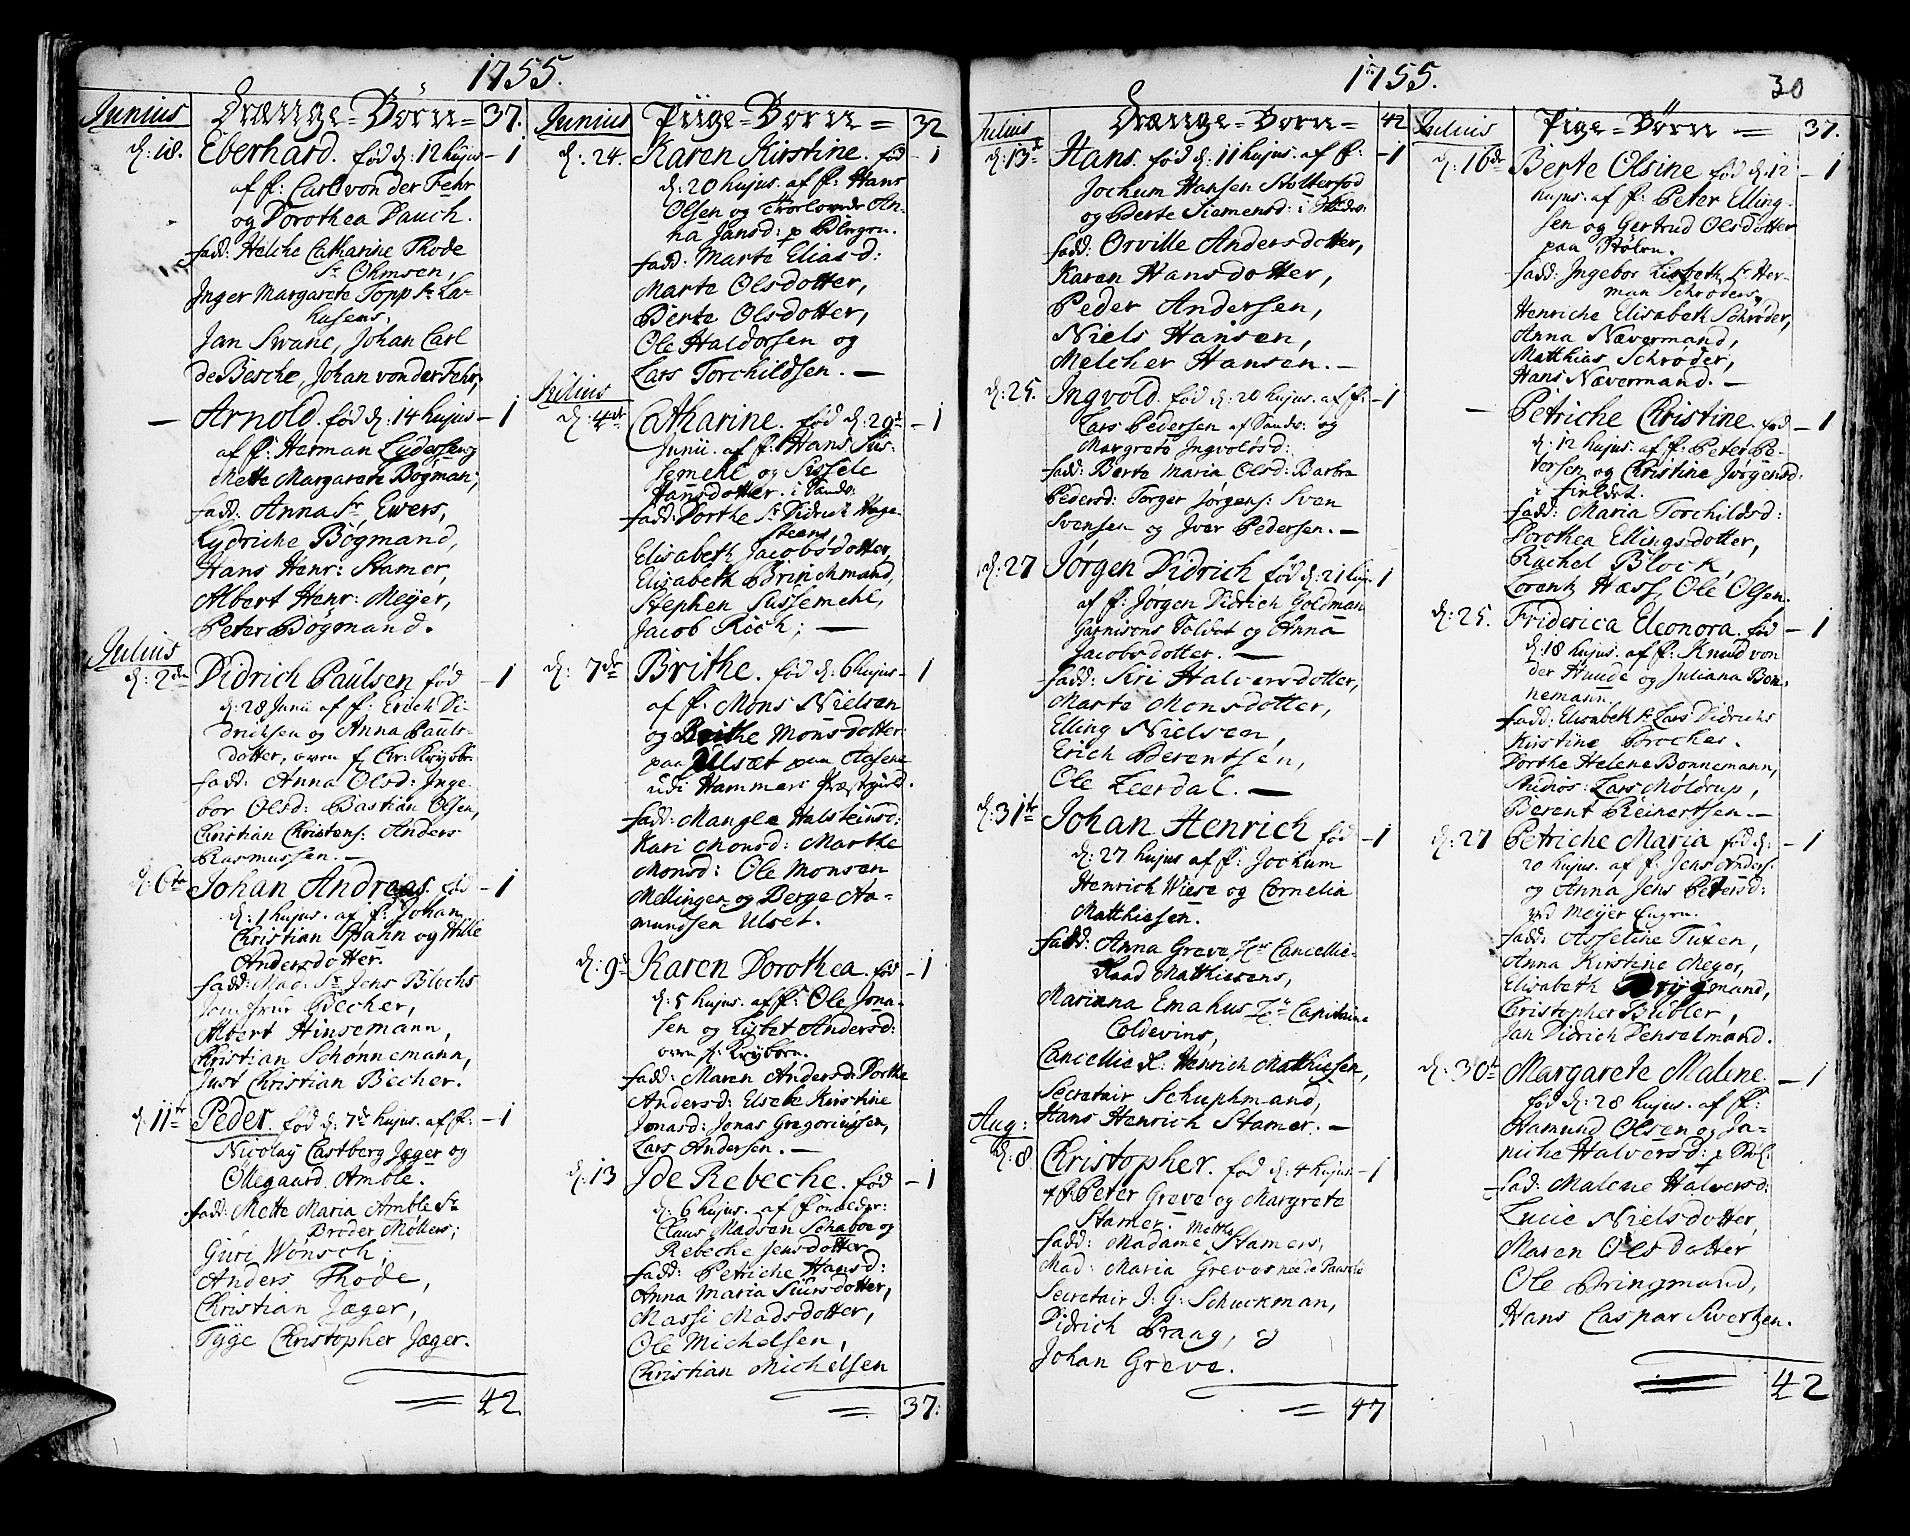 1755.
Junius
Drænge-Börn = 37.
d: 18. Eberhard. fød d: 12 hujus – 1
af f: Carl von der Fehr
og Dorothea Dauch.
fadd: Helche Catharine Thode
Sr Ohmsen,
Inger Margarete Topp Sr La-
husens,
Jan Swane, Johan Carl
de Besche, Johan von der Fehr,
— Arnold. fød d: 14 hujus – 1
af f: Herman Lyderssen og
Mette Margarete Bögman;
fadd: Anna Sr Ewers,
Lydriche Bögmand,
Hans Henr: Stamer,
Albert Henr: Meyer,
Peter Bögmand.
Julius
d: 2den Didrich Paulsen fød – 1
d: 28 Junii af f: Erich Di-
drichsen og Anna Pauls-
dotter,
fadd: Anna Olsd: Inge-
bor Olsd: Bastian Olsen,
Christian Christens: Anders
Rasmussen. —
d: 6te Johan Andreas. fød – 1
d: 1 hujus. af f: Johan
Christian Spahn og Hille
Andersdotter.
fadd: Mad: Sr Jens Blochs
Jomfrue Becher,
Albert Hinsemann,
Christian Schönnemann,
Just Christian Becher.
d: 11te Peder. fød d: 7de hujus. af f: – 1
Nicolay Castberg Jæger og
Ollegaard Amble.
fadd: Mette Maria Amble Sr
Broder Møllers;
Guri Wönsch,
Anders Thode,
Christian Jæger,
Tyge Christopher Jæger.
= 42
Junius
Piige-Born = 32
d: 24. Karen Kirstine. fød – 1
d: 20 hujus. af f: Hans
Olsen og Trorlovede An-
na Jansd:
fadd: Marte Eliasd:
Marte Olsdotter,
Berte Olsdotter,
Ole Haldorsen og
Lars Torchildsen. —
Julius
d: 4de Catharine. fød d: 29de – 1
Junii. af f: Hans Sus-
semehl og Sissele
Hansdotter. i Sands:
fadd: Dorthe Sr Didrich Hage-
steens,
Elisabeth Jacobsdotter,
Elisabeth Brinchmand,
Stephen Sussemehl,
Jacob Rich; —
d: 7de Brithe. fød d: 6 hujus – 1
af f: Mons Nielsen
og Brithe Monsdotter
paa Ulsæt paa Aasene
udi Hammers Præstgield.
fadd: Mangle Halsteinsd:
Kari Monsd: Marthe
Monsd: Ole Monsen
Mellingen og Berge Aa-
mundsen Ulset.
d: 9de Karen Dorothea. fød – 1
d: 5 hujus. af f: Ole Jona-
sen og Lisbet Andersd:
fadd: Maren Andersd: Dorthe
Andersd: Elsebe Kirstine
Jonasd: Jonas Gregoriussen,
Lars Andersen. —
d: 13 Ide Rebeche. fød – 1
d: 6 hujus. af
Claus Madsen Schaboe og
Rebeche Jensdotter
fadd: Petriche Hansd:
Anna Maria Siursdotter,
Massi Madsdotter,
Ole Michelsen,
Christian Michelsen
= 37.
1755.
30
Julius
Drænge-Born – 42
d: 13de Hans. fød d: 11 hujus. af f: – 1
Jochum Hansen Stoltersod
og Berte Siemensd: i
fadd: Orville Andersdotter,
Karen Hansdotter,
Peder Andersen,
Niels Hansen,
Melcher Hansen. —
d: 25. Ingvold. fød d: 20 hujus. af f: – 1
Lars Pedersen af Sands: og
Margrete Ingvolsd:
fadd: Berte Maria Olsd: Barbra
Pedersd: Torger Jørgens: Sven
Svensen og Iver Pedersen. —
d: 27 Jørgen Didrich fød d: 21 huj: 1
af f: Jørgen Didrich Goldman
Garnisons Soldat og Anna
Jacobsdotter. —
fadd: Siri Halversdotter,
Marte Monsdotter,
Elling Nielsen,
Erich Berentsen,
Ole Leerdal. —
d: 31te Johan Henrich fød – 1
d: 27 hujus af f: Jochum
Henrich Wiese og Cornelia
Matthiesen.
fadd: Anna Greve, Hr Cancellie-
Raad Mathiesens,
Marianna Emahus Hr Capitaine
Coldevins,
Cancellie R: Henrich Mathiesen,
Secretair Schuphmand,
Hans Henrich Stamer. —
Aug:
d: 8 Christopher. fød d: 4 hujus – 1
af f: Peter Greve og Margrete
Stamer.
fadd: Madame Mette Stamers,
Mad: Maria Greves
Secretair J: G: Schuckman,
Didrich Prang, og
Johan Greve.
= 47
Julius
Pige-Börn = 37.
d: 16de Berte Olsine fød d: 12 – 1
hujus. af f: Peter Elling-
sen og Gertrud Olsdotter
paa Stølen.
fadd: Ingebor Lisbeth Sr Her-
man Schrøders,
Henriche Elisabeth Schrøder,
Anna Nævermand,
Matthias Schrøder,
Hans Nævermand. —
— Petriche Christine. fød – 1
d: 12 hujus. af f: Peter Pe-
tersen og Christine Jørgensd:
fadd: Maria Torchildsd:
Dorothea Ellingsdotter,
Rachel Block,
Lorentz Hass, Ole Olsen.
d: 25. Friderica Eleonora. fød – 1
d: 18 hujus. af f: Knud von
der Huude og Juliana Bon-
nemann.
fadd: Elisabeth Sr Lars Didrichs
Kirstine Brocher.
Dorthe Helene Bonnemann,
Studios: Lars Møldrup,
Berent Reinertsen. —
d: 27 Petriche Maria fød d: – 1
20 hujus. af f: Jens Anders:
og Anna Jens Petersd:
fadd: Asseline Tuxen,
Anna Kirstine Meyer,
Elisabeth mand,
Christopher Bübler,
Jan Didrich Denselmand.
d: 30te Margarete Malene. – 1
fød d: 28 hujus. af f:
Hamund Olsen og Ja-
niche Halversd:
fad: Malene Halversd:
Lucie Nielsdotter,
Maren Olsdotter
Ole Bringmand,
Hans Caspar Swertzen.
= 42